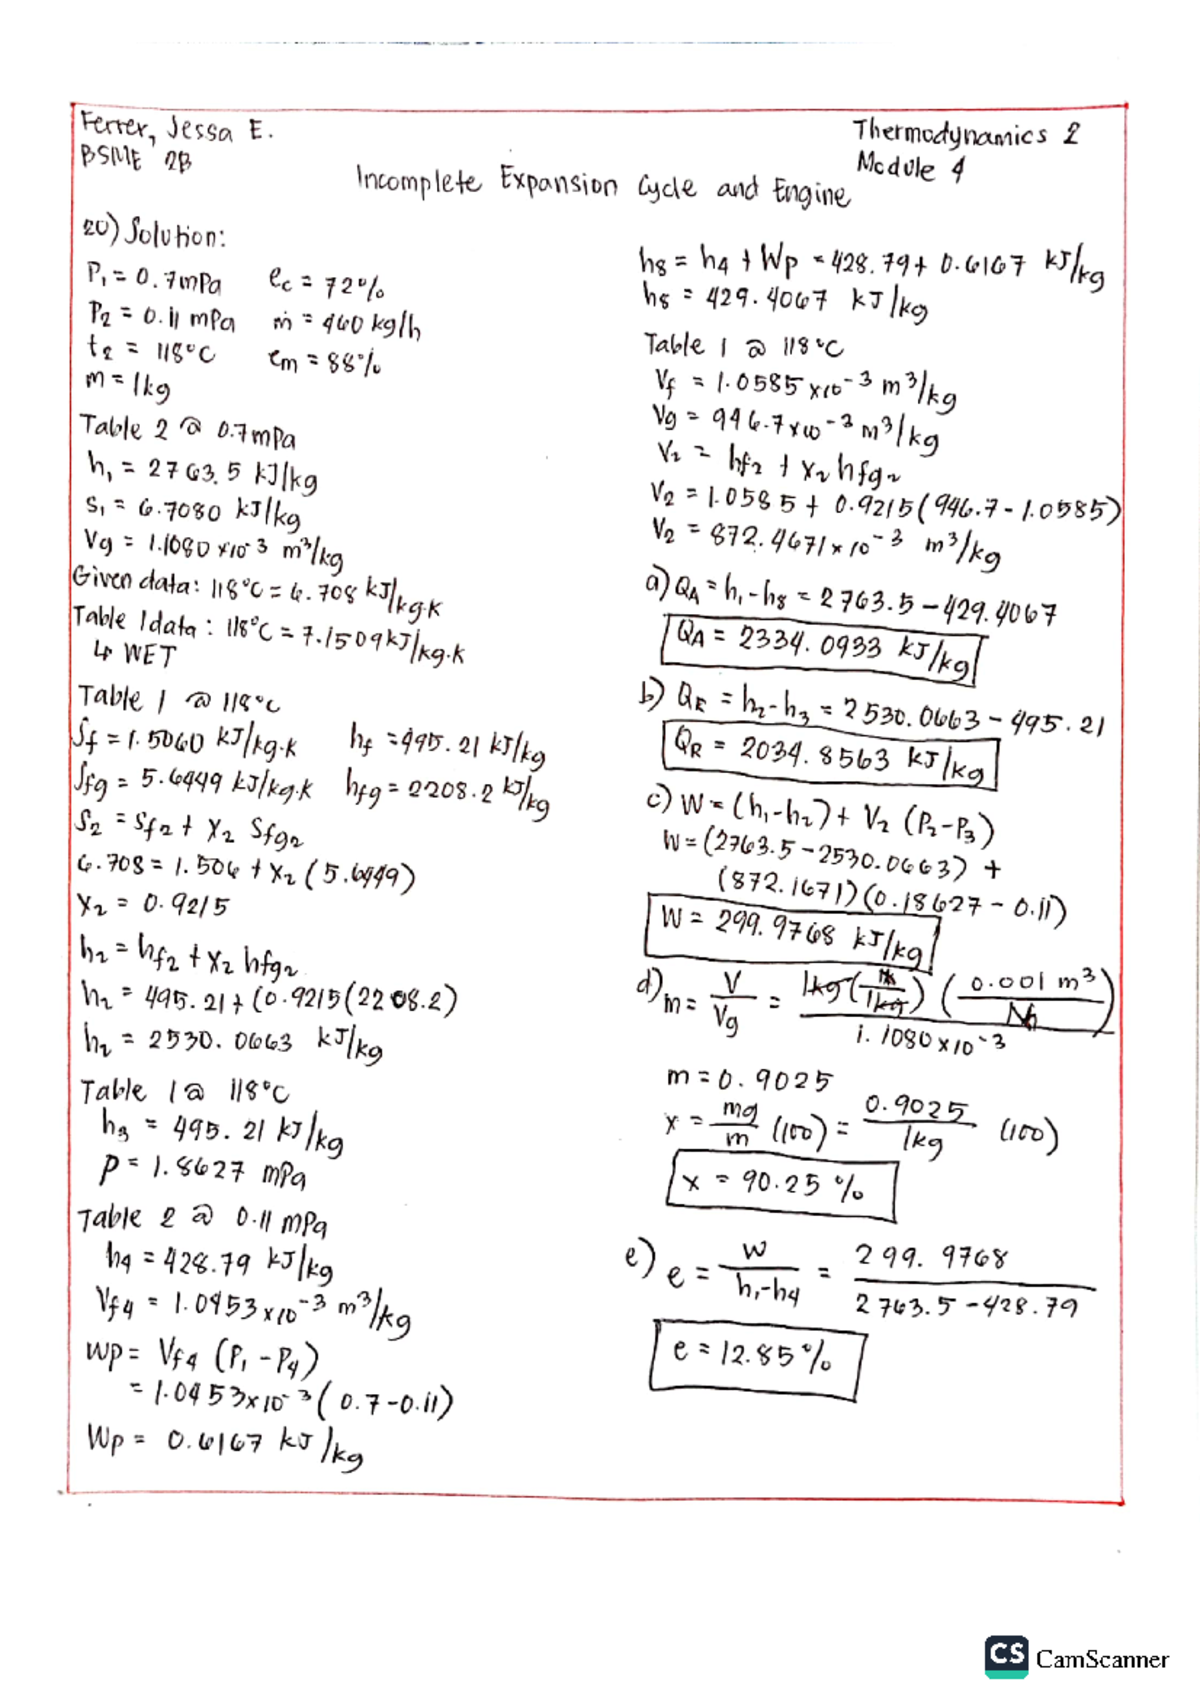 Ferrer, Jessa E.
BSME 2B
Thermodynamics 2
Module 4
Incomplete Expansion Cycle and Engine
20) Solution:
P₁ = 0.7mPa   ec = 72%
P₂ = 0.11 mPa   ṁ = 460 kg/h
t₂ = 118°C   em = 88%
m = 1kg
Table 2 @ 0.7mPa
h₁ = 2763.5 kJ/kg
S₁ = 6.7080 kJ/kg
Vg = 1.1080 x10-3 m³/kg
Given data: 118°C = 6.708 kJ/kg.K
Table 1 data: 118°C = 7.1509 kJ/kg.K
↳ WET
Table 1 @ 118°C
Sf = 1.5060 kJ/kg.K   hf = 495.21 kJ/kg
Sfg = 5.6449 kJ/kg.K   hfg = 2208.2 kJ/kg
S₂ = Sf₂ + X₂ Sfg₂
6.708 = 1.506 + X₂ (5.6449)
X₂ = 0.9215
h₂ = hf₂ + X₂ hfg₂
h₂ = 495.21 + (0.9215(2208.2)
h₂ = 2530.0663 kJ/kg
Table 1 @ 118°C
h₃ = 495.21 kJ/kg
P = 1.8627 mPa
Table 2 @ 0.11 mPa
h₄ = 428.79 kJ/kg
Vf₄ = 1.0453 x10⁻³ m³/kg
Wp = Vf₄ (P₁ - P₄)
= 1.0453x10⁻³ (0.7-0.11)
Wp = 0.6167 kJ/kg
h₈ = h₄ + Wp = 428.79 + 0.6167 kJ/kg
h₈ = 429.4067 kJ/kg
Table 1 @ 118°C
Vf = 1.0585 x10⁻³ m³/kg
Vg = 946.7 x10⁻³ m³/kg
V₂ = hf₂ + X₂ hfg₂
V₂ = 1.0585 + 0.9215 (946.7 - 1.0585)
V₂ = 872.4671 x 10⁻³ m³/kg
a) QA = h₁ - h₈ = 2763.5 - 429.4067
QA = 2334.0933 kJ/kg
b) QR = h₂ - h₃ = 2530.0663 - 495.21
QR = 2034.8563 kJ/kg
c) W = (h₁-h₂) + V₂ (P₂-P₃)
W = (2763.5 - 2530.0663) +
(872.1671) (0.18627 - 0.11)
W = 299.9768 kJ/kg
d) m = V/Vg = 1kg ( /1kg) (0.001 m³/ ) / 1.1080 x10⁻³
m = 0.9025
x = mg/m (100) = 0.9025/1kg (100)
x = 90.25 %
e) e = W/h₁-h₄ = 299.9768/2763.5-428.79
e = 12.85%
CS CamScanner